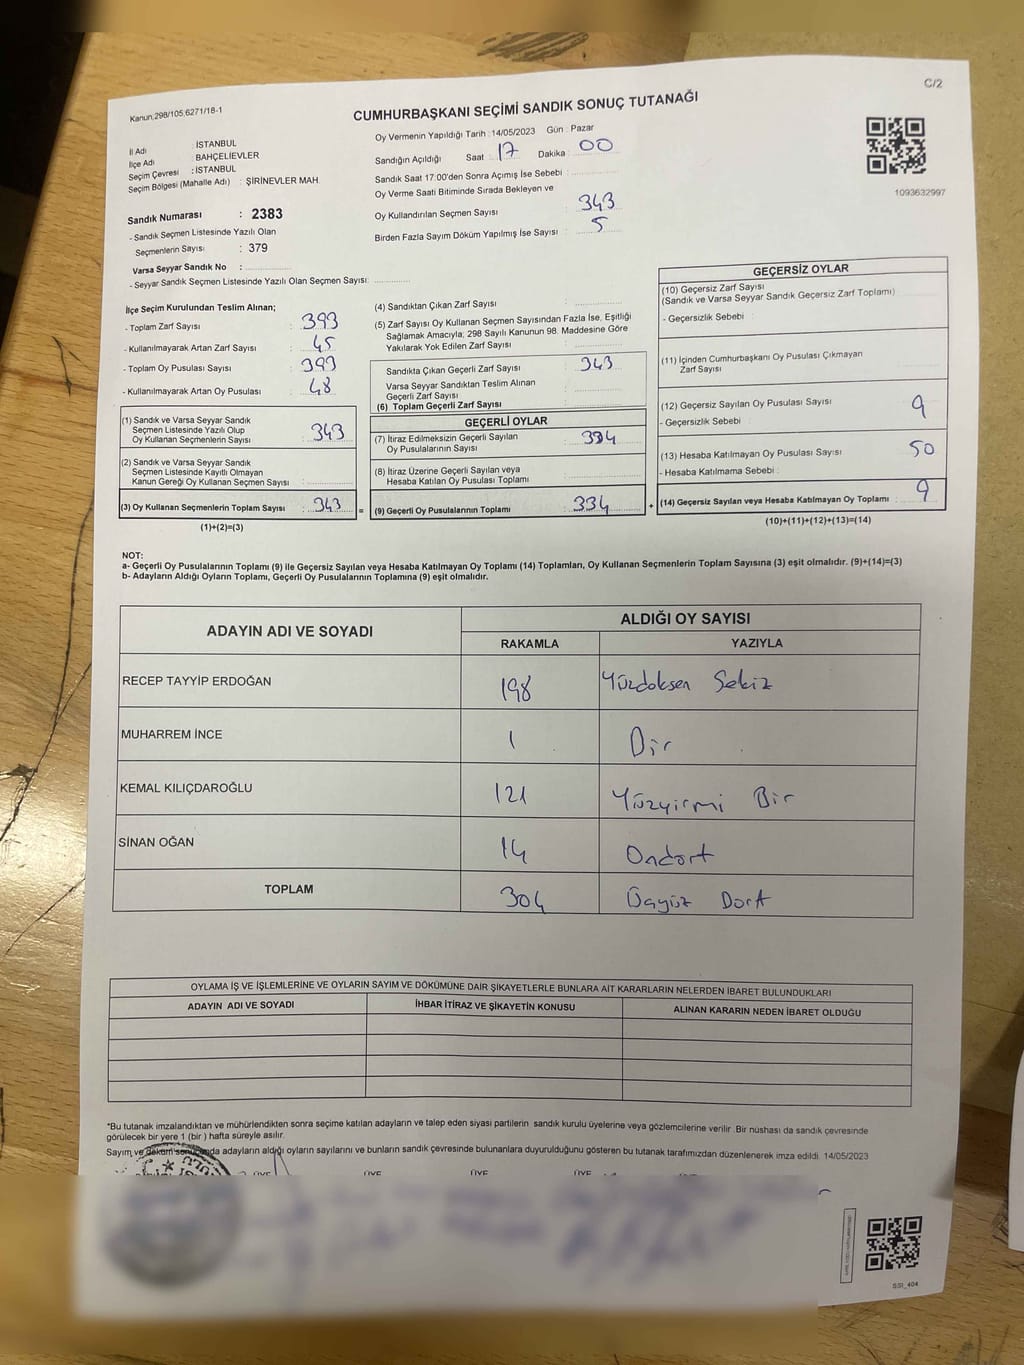 C/2
Kanun:298/105;6271/18-1
CUMHURBAŞKANI SEÇİMİ SANDIK SONUÇ TUTANAĞI
İl Adı : İSTANBUL
İlçe Adı : BAHÇELİEVLER
Seçim Çevresi : İSTANBUL
Seçim Bölgesi (Mahalle Adı) : ŞİRİNEVLER MAH.
Sandık Numarası : 2383
- Sandık Seçmen Listesinde Yazılı Olan
Seçmenlerin Sayısı : 379
Varsa Seyyar Sandık No :
- Seyyar Sandık Seçmen Listesinde Yazılı Olan Seçmen Sayısı:
Oy Vermenin Yapıldığı Tarih : 14/05/2023 Gün : Pazar
Sandığın Açıldığı Saat : 17 Dakika : 00
Sandık Saat 17:00'den Sonra Açımış İse Sebebi :
Oy Verme Saati Bitiminde Sırada Bekleyen ve
Oy Kullandırılan Seçmen Sayısı : 343
Birden Fazla Sayım Döküm Yapılmış İse Sayısı : 5
1093632997
İlçe Seçim Kurulundan Teslim Alınan;
- Toplam Zarf Sayısı : 393
- Kullanılmayarak Artan Zarf Sayısı : 45
- Toplam Oy Pusulası Sayısı : 393
- Kullanılmayarak Artan Oy Pusulası : 48
(1) Sandık ve Varsa Seyyar Sandık
Seçmen Listesinde Yazılı Olup
Oy Kullanan Seçmenlerin Sayısı : 343
(2) Sandık ve Varsa Seyyar Sandık
Seçmen Listesinde Kayıtlı Olmayan
Kanun Gereği Oy Kullanan Seçmen Sayısı :
(3) Oy Kullanan Seçmenlerin Toplam Sayısı : 343 =
(1)+(2)=(3)
(4) Sandıktan Çıkan Zarf Sayısı :
(5) Zarf Sayısı Oy Kullanan Seçmen Sayısından Fazla İse, Eşitliği
Sağlamak Amacıyla, 298 Sayılı Kanunun 98. Maddesine Göre
Yakılarak Yok Edilen Zarf Sayısı :
Sandıkta Çıkan Geçerli Zarf Sayısı : 343
Varsa Seyyar Sandıktan Teslim Alınan
Geçerli Zarf Sayısı :
(6) Toplam Geçerli Zarf Sayısı :
GEÇERLİ OYLAR
(7) İtiraz Edilmeksizin Geçerli Sayılan
Oy Pusulasının Sayısı : 334
(8) İtiraz Üzerine Geçerli Sayılan veya
Hesaba Katılan Oy Pusulası Toplamı :
(9) Geçerli Oy Pusulalarının Toplamı : 334 +
GEÇERSİZ OYLAR
(10) Geçersiz Zarf Sayısı :
(Sandık ve Varsa Seyyar Sandık Geçersiz Zarf Toplamı)
- Geçersizlik Sebebi :
(11) İçinden Cumhurbaşkanı Oy Pusulası Çıkmayan
Zarf Sayısı :
(12) Geçersiz Sayılan Oy Pusulası Sayısı : 9
- Geçersizlik Sebebi :
(13) Hesaba Katılmayan Oy Pusulası Sayısı : 50
- Hesaba Katılmama Sebebi :
(14) Geçersiz Sayılan veya Hesaba Katılmayan Oy Toplamı : 9
(10)+(11)+(12)+(13)=(14)
NOT:
a- Geçerli Oy Pusulalarının Toplamı (9) ile Geçersiz Sayılan veya Hesaba Katılmayan Oy Toplamı (14) Toplamları, Oy Kullanan Seçmenlerin Toplam Sayısına (3) eşit olmalıdır. (9)+(14)=(3)
b- Adayların Aldığı Oyların Toplamı, Geçerli Oy Pusulalarının Toplamına (9) eşit olmalıdır.
ADAYIN ADI VE SOYADI
ALDIĞI OY SAYISI
RAKAMLA YAZIYLA
RECEP TAYYİP ERDOĞAN 198 Yüzdoksen Sekiz
MUHARREM İNCE 1 Bir
KEMAL KILIÇDAROĞLU 121 Yüzyirmi Bir
SİNAN OĞAN 14 Ondört
TOPLAM 304 Üçyüz Dört
OYLAMA İŞ VE İŞLEMLERİNE VE OYLARIN SAYIM VE DÖKÜMÜNE DAİR ŞİKAYETLERLE BUNLARA AİT KARARLARIN NELERDEN İBARET BULUNDUKLARI
ADAYIN ADI VE SOYADI İHBAR İTİRAZ VE ŞİKAYETİN KONUSU ALINAN KARARIN NEDEN İBARET OLDUĞU
*Bu tutanak imzalandıktan ve mühürlendikten sonra seçime katılan adayların ve talep eden siyasi partilerin sandık kurulu üyelerine veya gözlemcilerine verilir. Bir nüshası da sandık çevresinde
görülecek bir yere 1 (bir ) hafta süreyle asılır.
Sayım ve döküm sonucunda adayların aldığı oyların sayılarını ve bunların sandık çevresinde bulunanlara duyurulduğunu gösteren bu tutanak tarafımızdan düzenlenerek imza edildi. 14/05/2023
ÜYE ÜYE ÜYE ÜYE
SSI_404